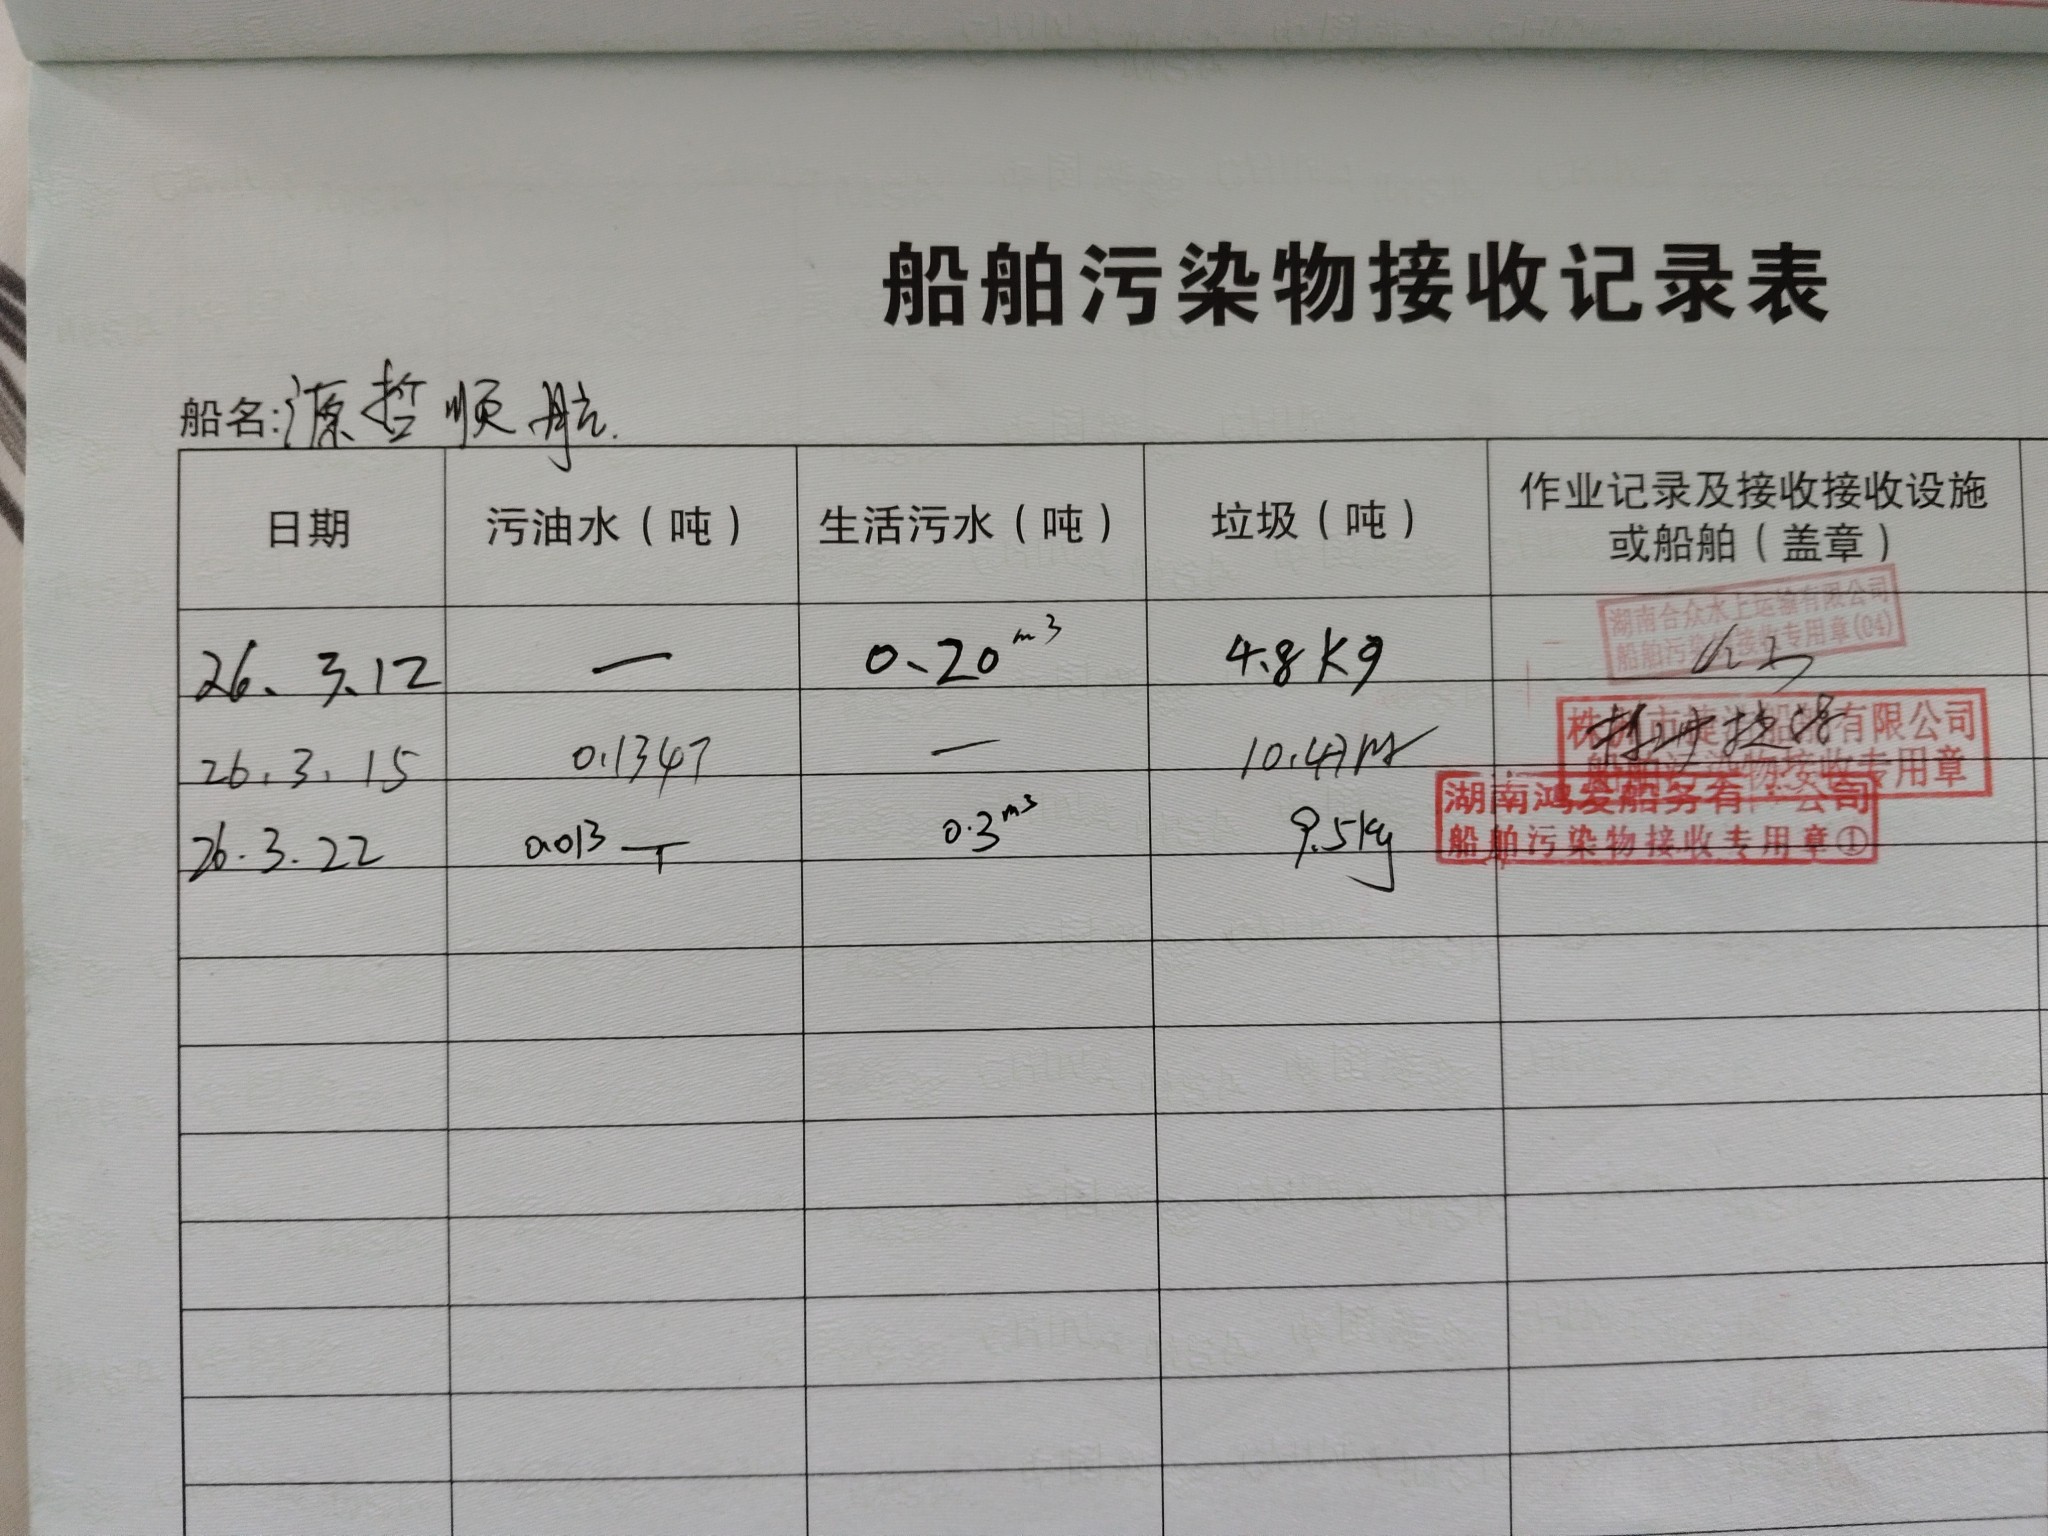 船舶污染物接收记录表
船名:源哲顺航
日期 污油水（吨） 生活污水（吨） 垃圾（吨） 作业记录及接收接收设施
或船舶（盖章）
湖南合众水上运输有限公司
船舶污染物接收专用章(04)
26.3.12 — 0.20m³ 4.8Kg
株洲市捷洪船舶有限公司
船舶污染物接收专用章
26.3.15 0.1347 — 10.47
湖南鸿发船务有限公司
船舶污染物接收专用章①
26.3.22 0.013 T 0.3m³ 9.5Kg